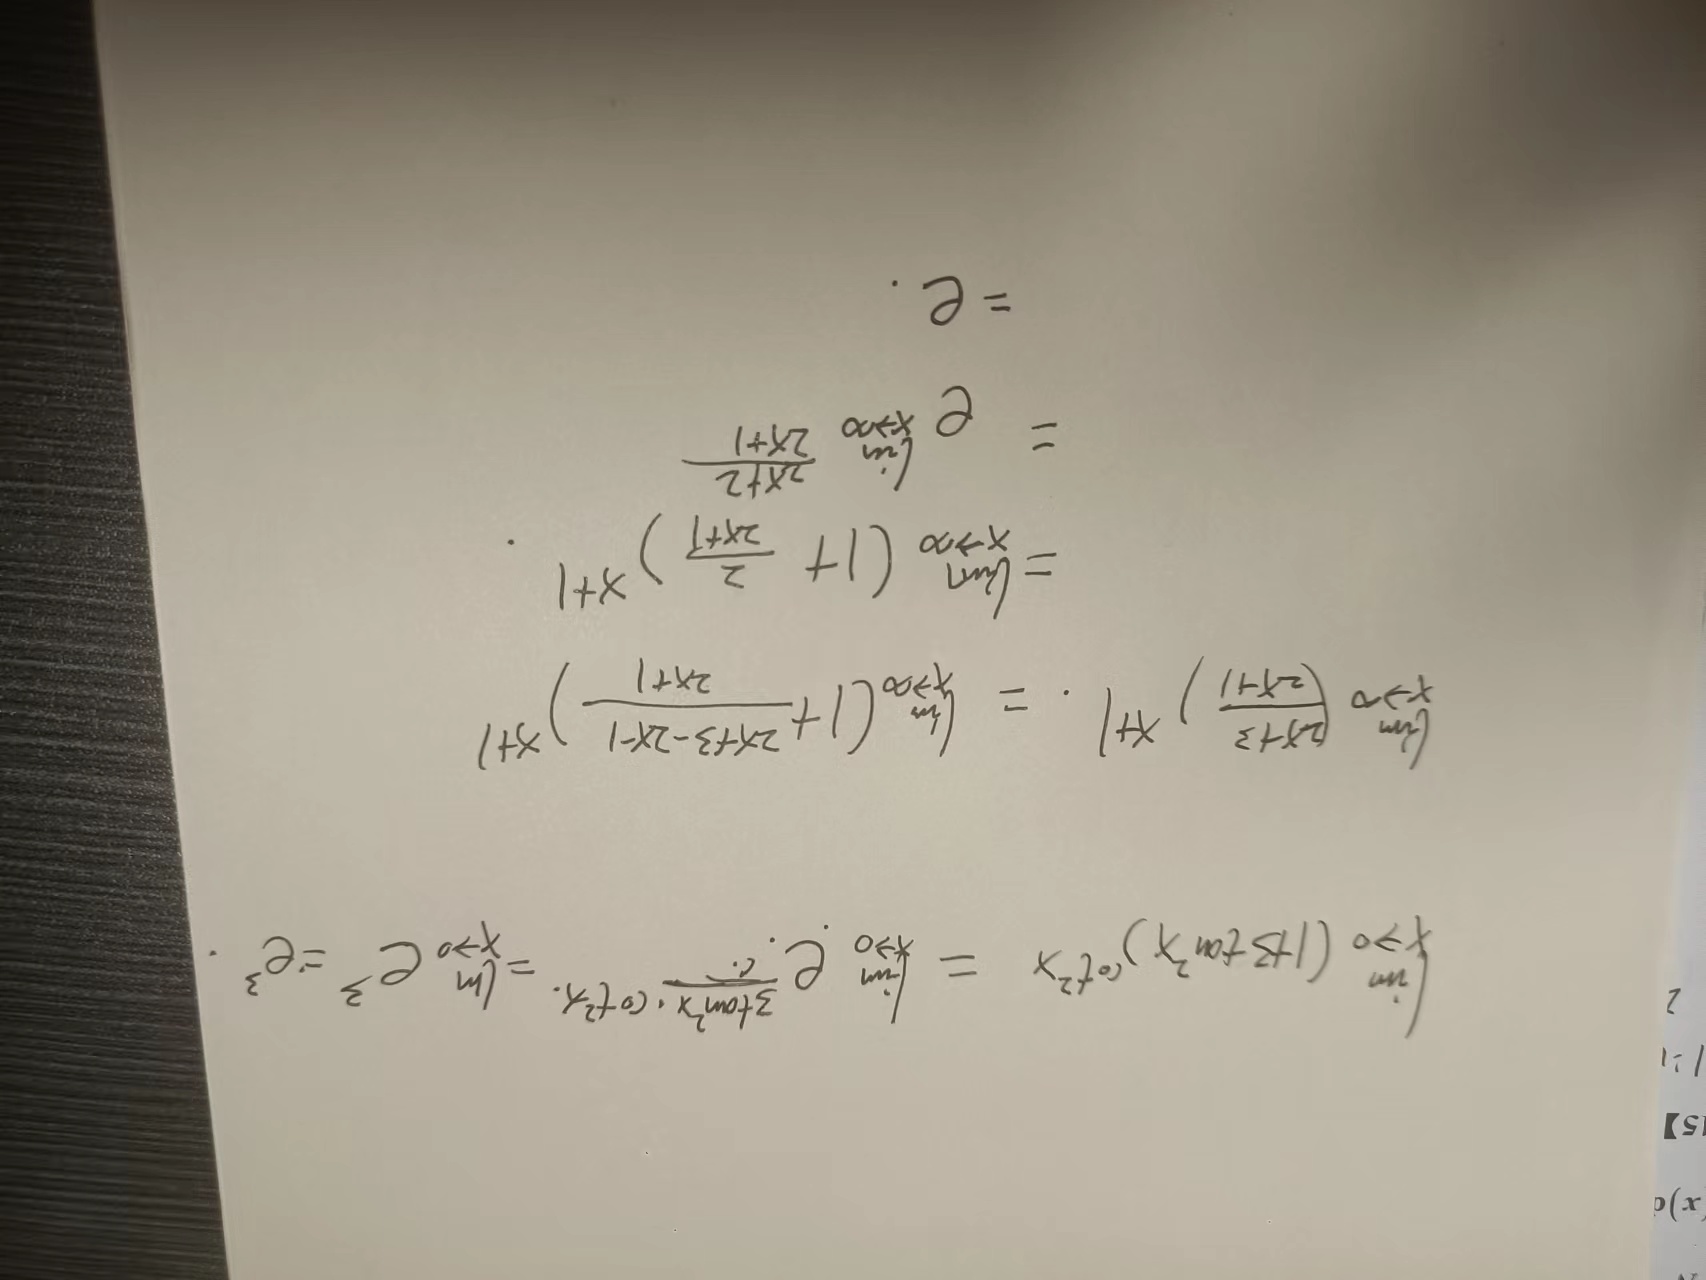 lim x→0 (1+3tan²x)^cot²x = lim x→0 e^3tan²x·cot²x. = lim x→0 e³ = e³.
lim x→∞ (2x+3/2x+1)^x+1. = lim x→∞ (1+ 2x+3-2x-1/2x+1)^x+1
= lim x→∞ (1+ 2/2x+1)^x+1.
= e^lim x→∞ 2x+2/2x+1
= e.
2
15】